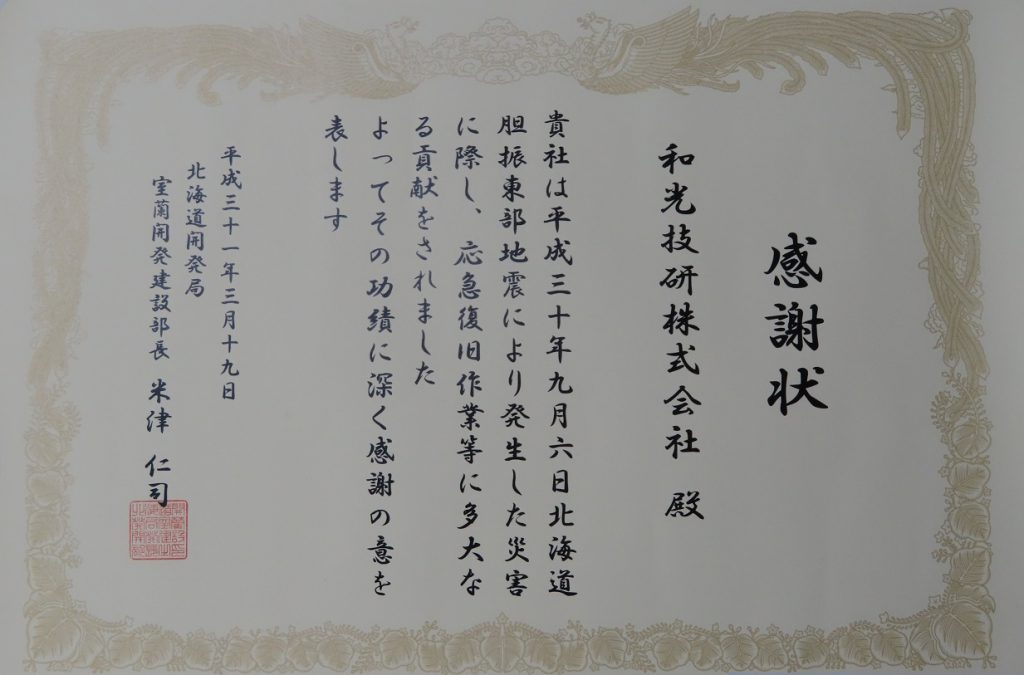 感謝状
和光技研株式会社 殿
貴社は平成三十年九月六日北海道
胆振東部地震により発生した災害
に際し、応急復旧作業等に多大な
る貢献をされました
よってその功績に深く感謝の意を
表します
平成三十一年三月十九日
北海道開発局
室蘭開発建設部長 米津 仁司